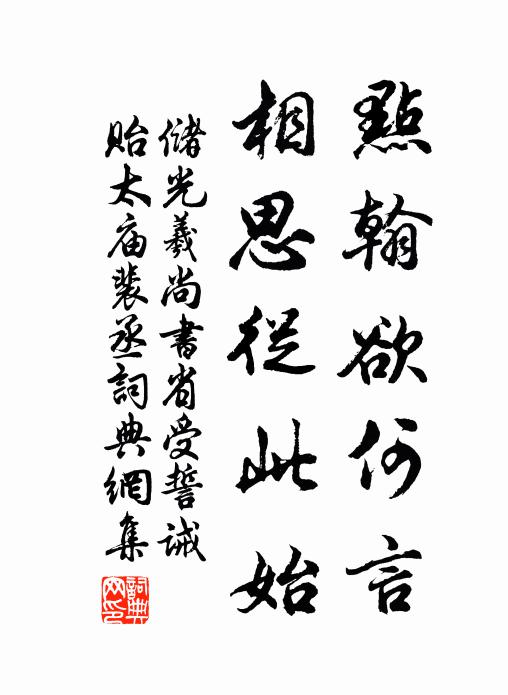 點翰欲何言
相思從此始
儲光羲尚書省受誓誡
貽太庙裴丞詞典網集
詞典
网印